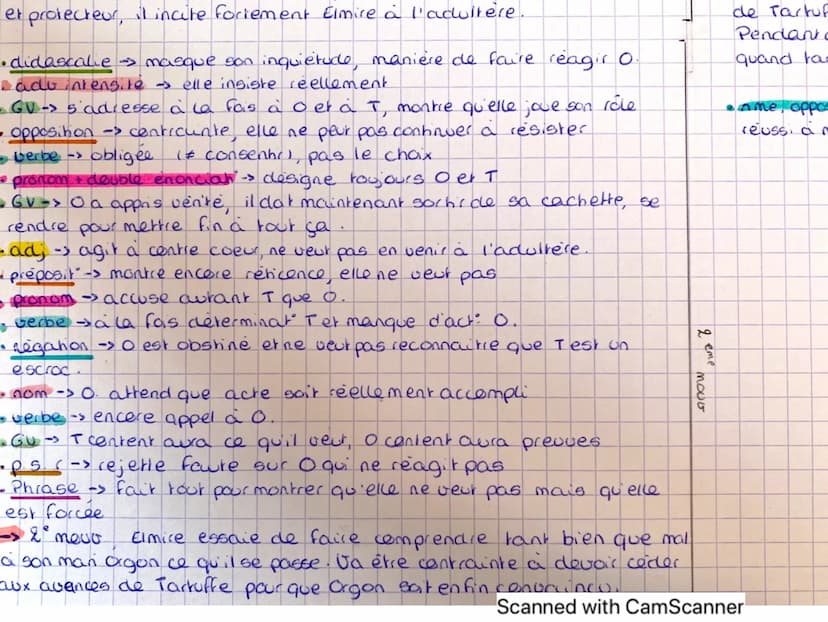 et protecteur, il incite fortement Elmire à l'adultère.
• didascalie -> masque son inquiétude, manière de faire réagir O.
• adv intensité -> elle insiste réellement
• GV -> s'adresse à la fois à O et à T, montre qu'elle joue son rôle
• opposition -> contrainte, elle ne peut pas continuer à résister
• verbe -> obligée (≠ consentir), pas le choix
• pronom + double énonciat° -> désigne toujours O et T
• GV -> O a appris vérité, il doit maintenant sortir de sa cachette, se
rendre pour mettre fin à tout ça.
• adj -> agit à contre coeur, ne veut pas en venir à l'adultère.
• préposit° -> montre encore réticence, elle ne veut pas
• pronom -> accuse autant T que O.
• verbe -> à la fois déterminat° T et manque d'act° O.
• négation -> O est obstiné et ne veut pas reconnaitre que T est un
escroc.
• nom -> O. attend que acte soit réellement accompli
• verbe -> encore appel à O.
• GV -> T content aura ce qu'il veut, O content aura preuves
• p.s.r -> rejette faute sur O qui ne réagit pas
- Phrase -> fait tout pour montrer qu'elle ne veut pas mais qu'elle
est forcée
-> 2° mouv Elmire essaie de faire comprendre tant bien que mal
à son mari Orgon ce qu'il se passe. Va être contrainte à devoir céder
aux avances de Tartuffe pour que Orgon soit enfin convaincu.
2 eme mouv
de Tartuf
Pendant
quand
• nme, oppos
réussi à
Scanned with CamScanner